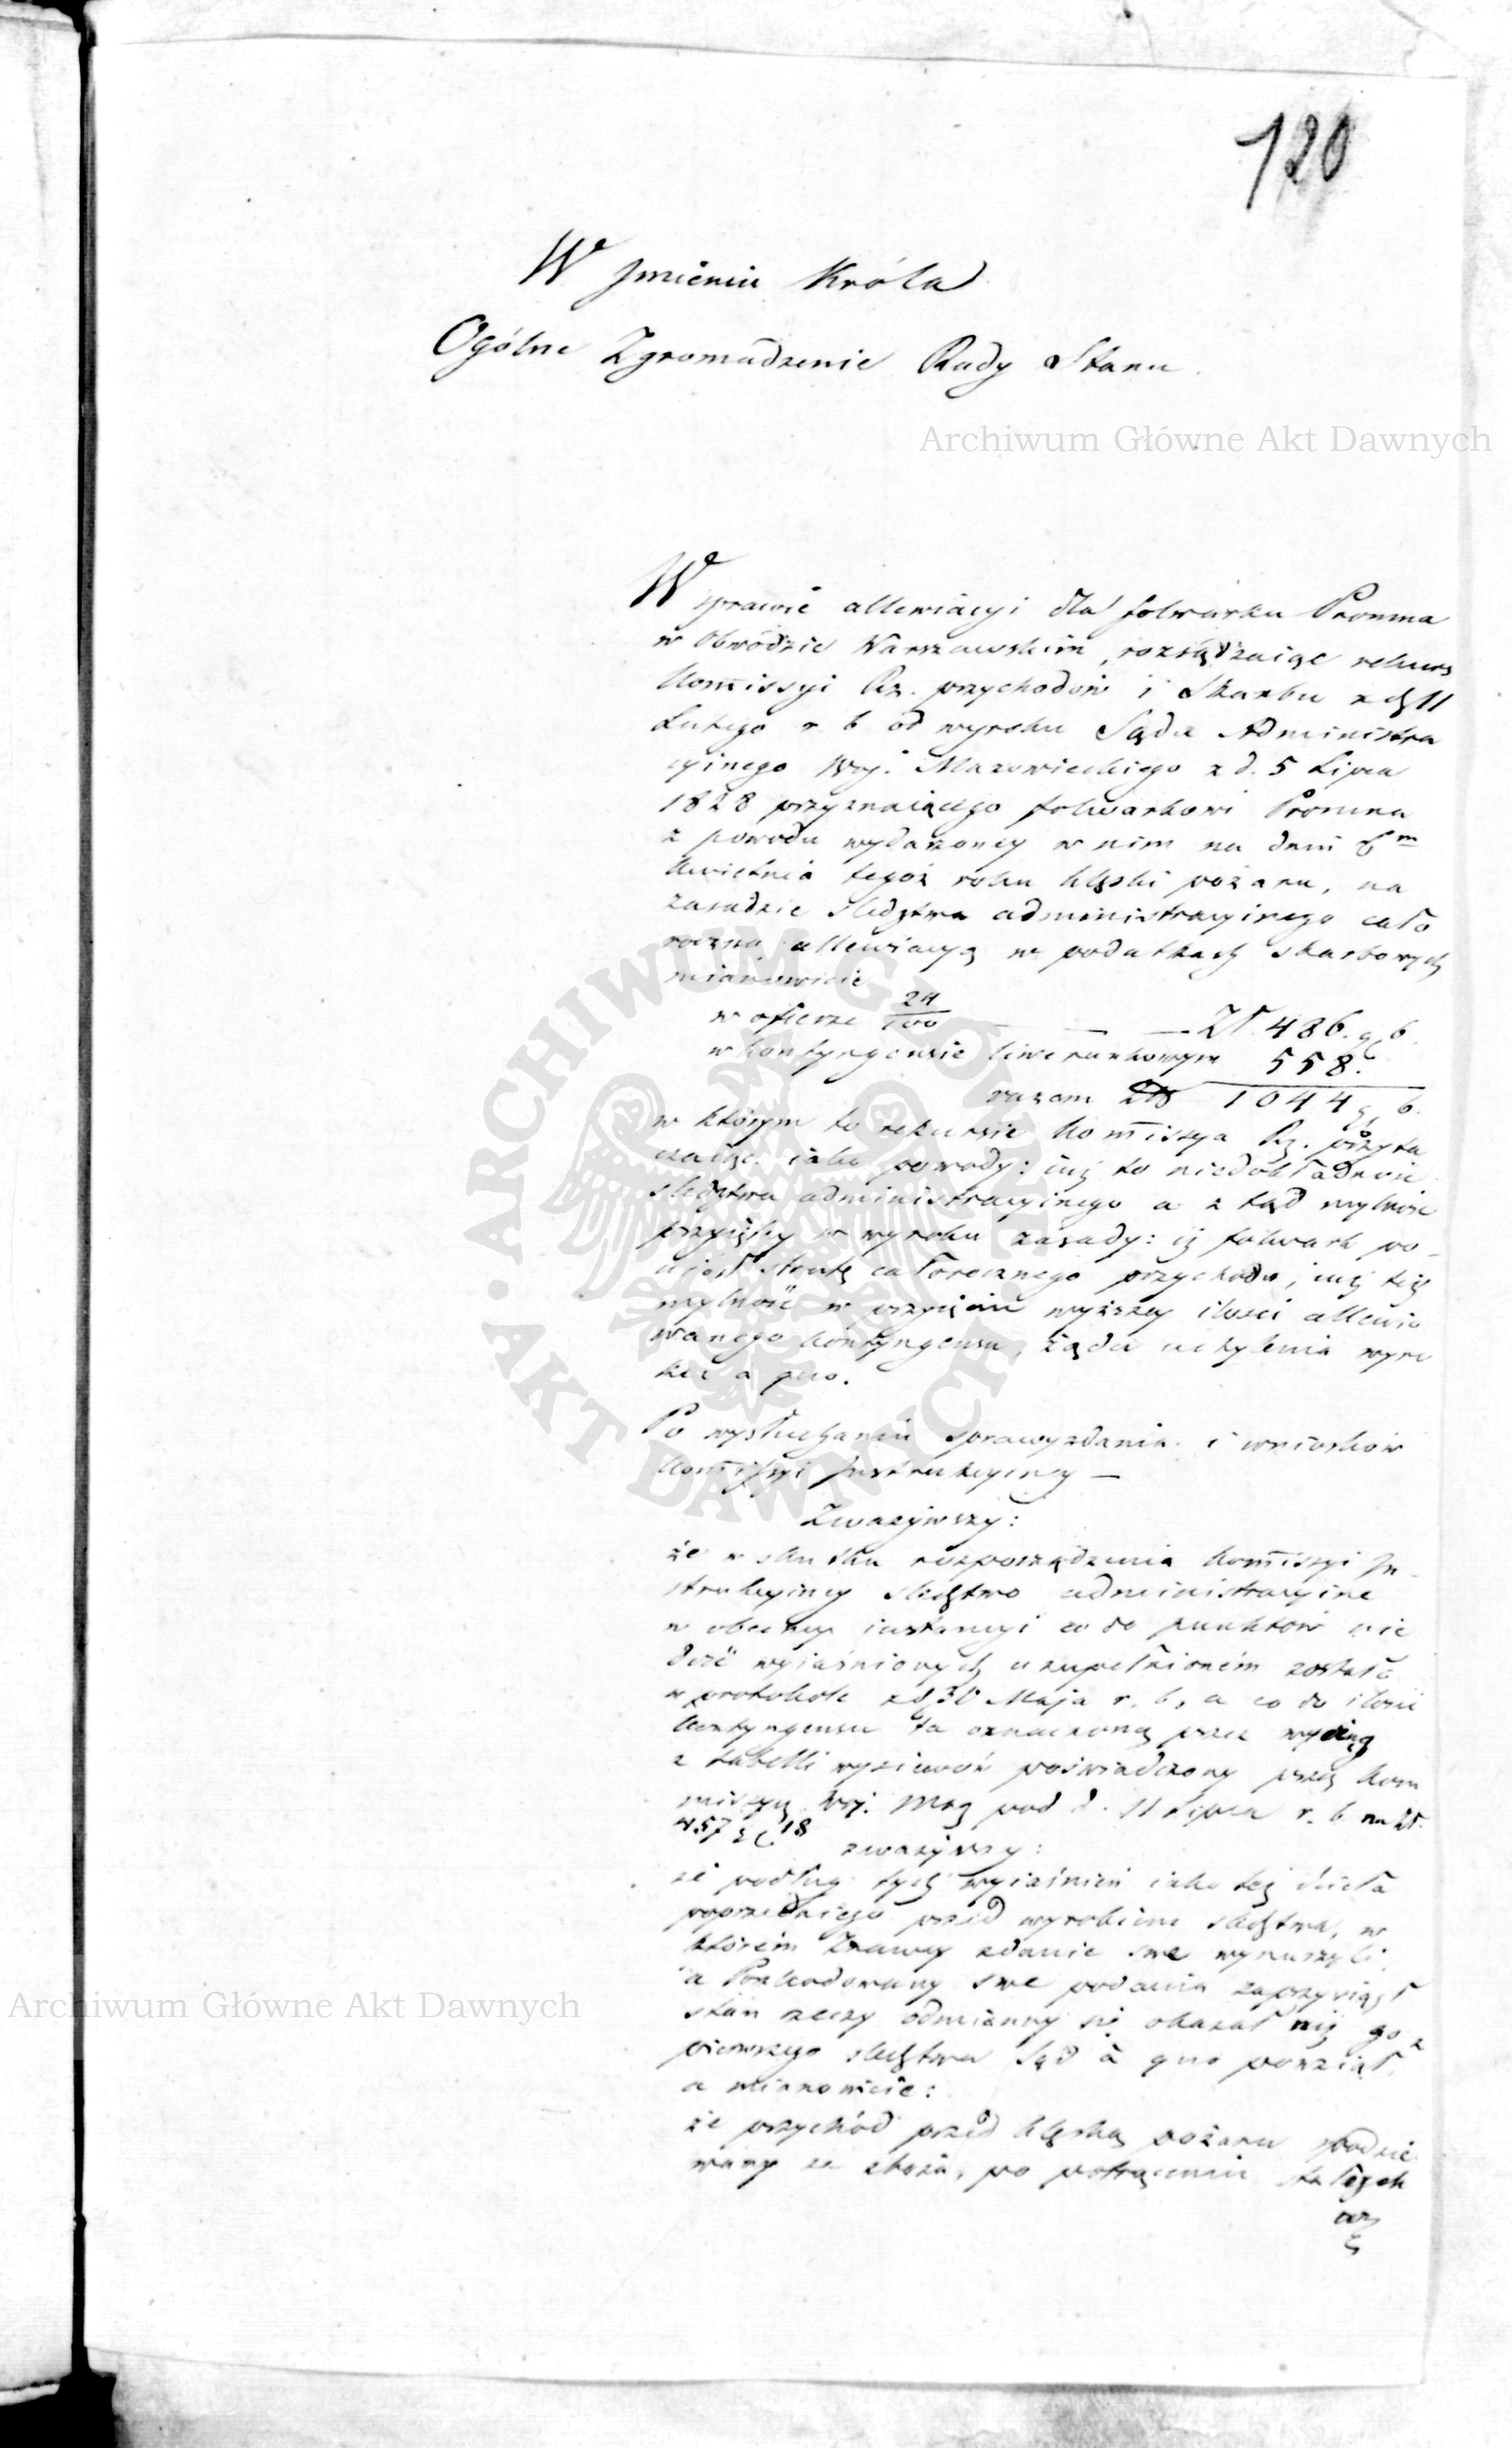 120
W Jmieniu Króla
Ogólne Zgromadzenie Rady Stanu.
Archiwum Główne Akt Dawnych
W sprawie allewiacyi dla folwarku Promna
w Obwodzie Warszawskim, rozsądzaiąc rekurs
Kommissyi Rz. przychodów i Skarbu z d. 11
Lutego r. b od wyroku Sądu Administra
cyinego Wwj. Mazowieckiego z d. 5 Lipca
1828 przyznaiącego folwarkowi Promna
z powodu wydarzoney w nim na dniu 6m
Kwietnia tegoż roku klęski pożaru, na
zasadzie śledztwa administracyinego cało
roczną allewiacyą w podatkach skarbowych
mianowicie
w ofierze 24/100 — — — Zł 486. gr 6.
w kontyngensie liwerunkowym 558.
razem 1044 gr 6.
w którym to rekursie Kommissya Rz. przyta
czaiąc iako powody: iuż to niedokładność
śledztwa administracyinego a z tąd mylność
przyiętey w wyroku zasady: iż folwark po-
niósł stratę całorocznego przychodu, iuż też
mylność w przyięciu wyższey ilości allewio
wanego kontyngensu, żąda uchylenia wyro
ku a quo.
Po wysłuchaniu sprawozdania i wniosków
Kommissyi Jnstrukcyiney —
Zważywszy:
że w skutku rozporządzenia Kommissyi Jn-
strukcyiney śledztwo administracyine
w obecney instancyi co do punktów nie
dość wyiaśnionych uzupełnionem zostało
w protokole z d. 30 Maja r. b, a co do ilości
kontyngensu ta oznaczoną przez wyciąg
z tabelli wysiewów poświadczony przez Kom
missyą Wwj. Maz pod d. 11 Lipca r. b na Zł.
457 gr 18
zważywszy:
że podług tych wyiaśnień iako też
poprzedniego przed wyrokiem śledztwa, w
którem Znawcy zdanie swe wynurzyli,
a Poszkodowany swe podania zaprzysiągł
stan rzeczy odmienny się okazał niż go z
pierwszego śledztwa Sąd à quo powziął,
a mianowicie:
że przychód przed klęską pożaru spodzie
wany ze zboża, po potrąceniu stałych
Archiwum Główne Akt Dawnych
ARCHIWUM GŁÓWNE AKT DAWNYCH